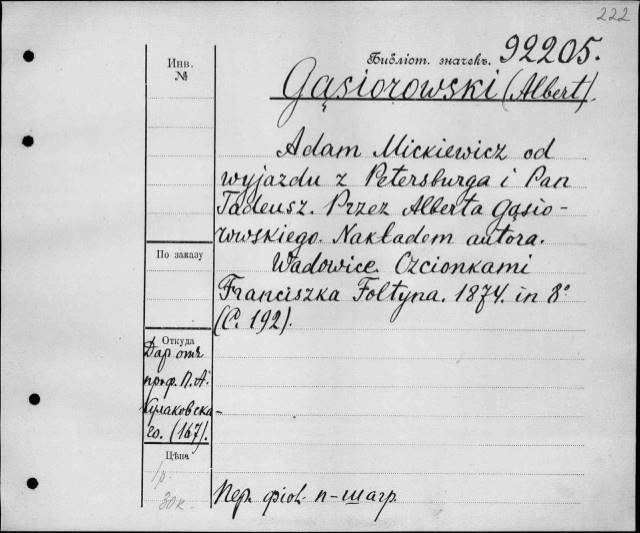 222
Инв.
№
Библіот. значекъ. 92205.
Gąsiorowski (Albert).
Adam Mickiewicz od
wyjazdu z Petersburga i Pan
Tadeusz. Przez Alberta Gąsio-
rowskiego. Nakładem autora.
Wadowice. Czcionkami
Franciszka Foltyna. 1874. in 8°
(С. 192).
По заказу
Откуда
Дар отъ
проф. П. А.
Кулаковска-
го. (167).
Цѣна
1р.
30к.
Пер. фіол. п-шагр.